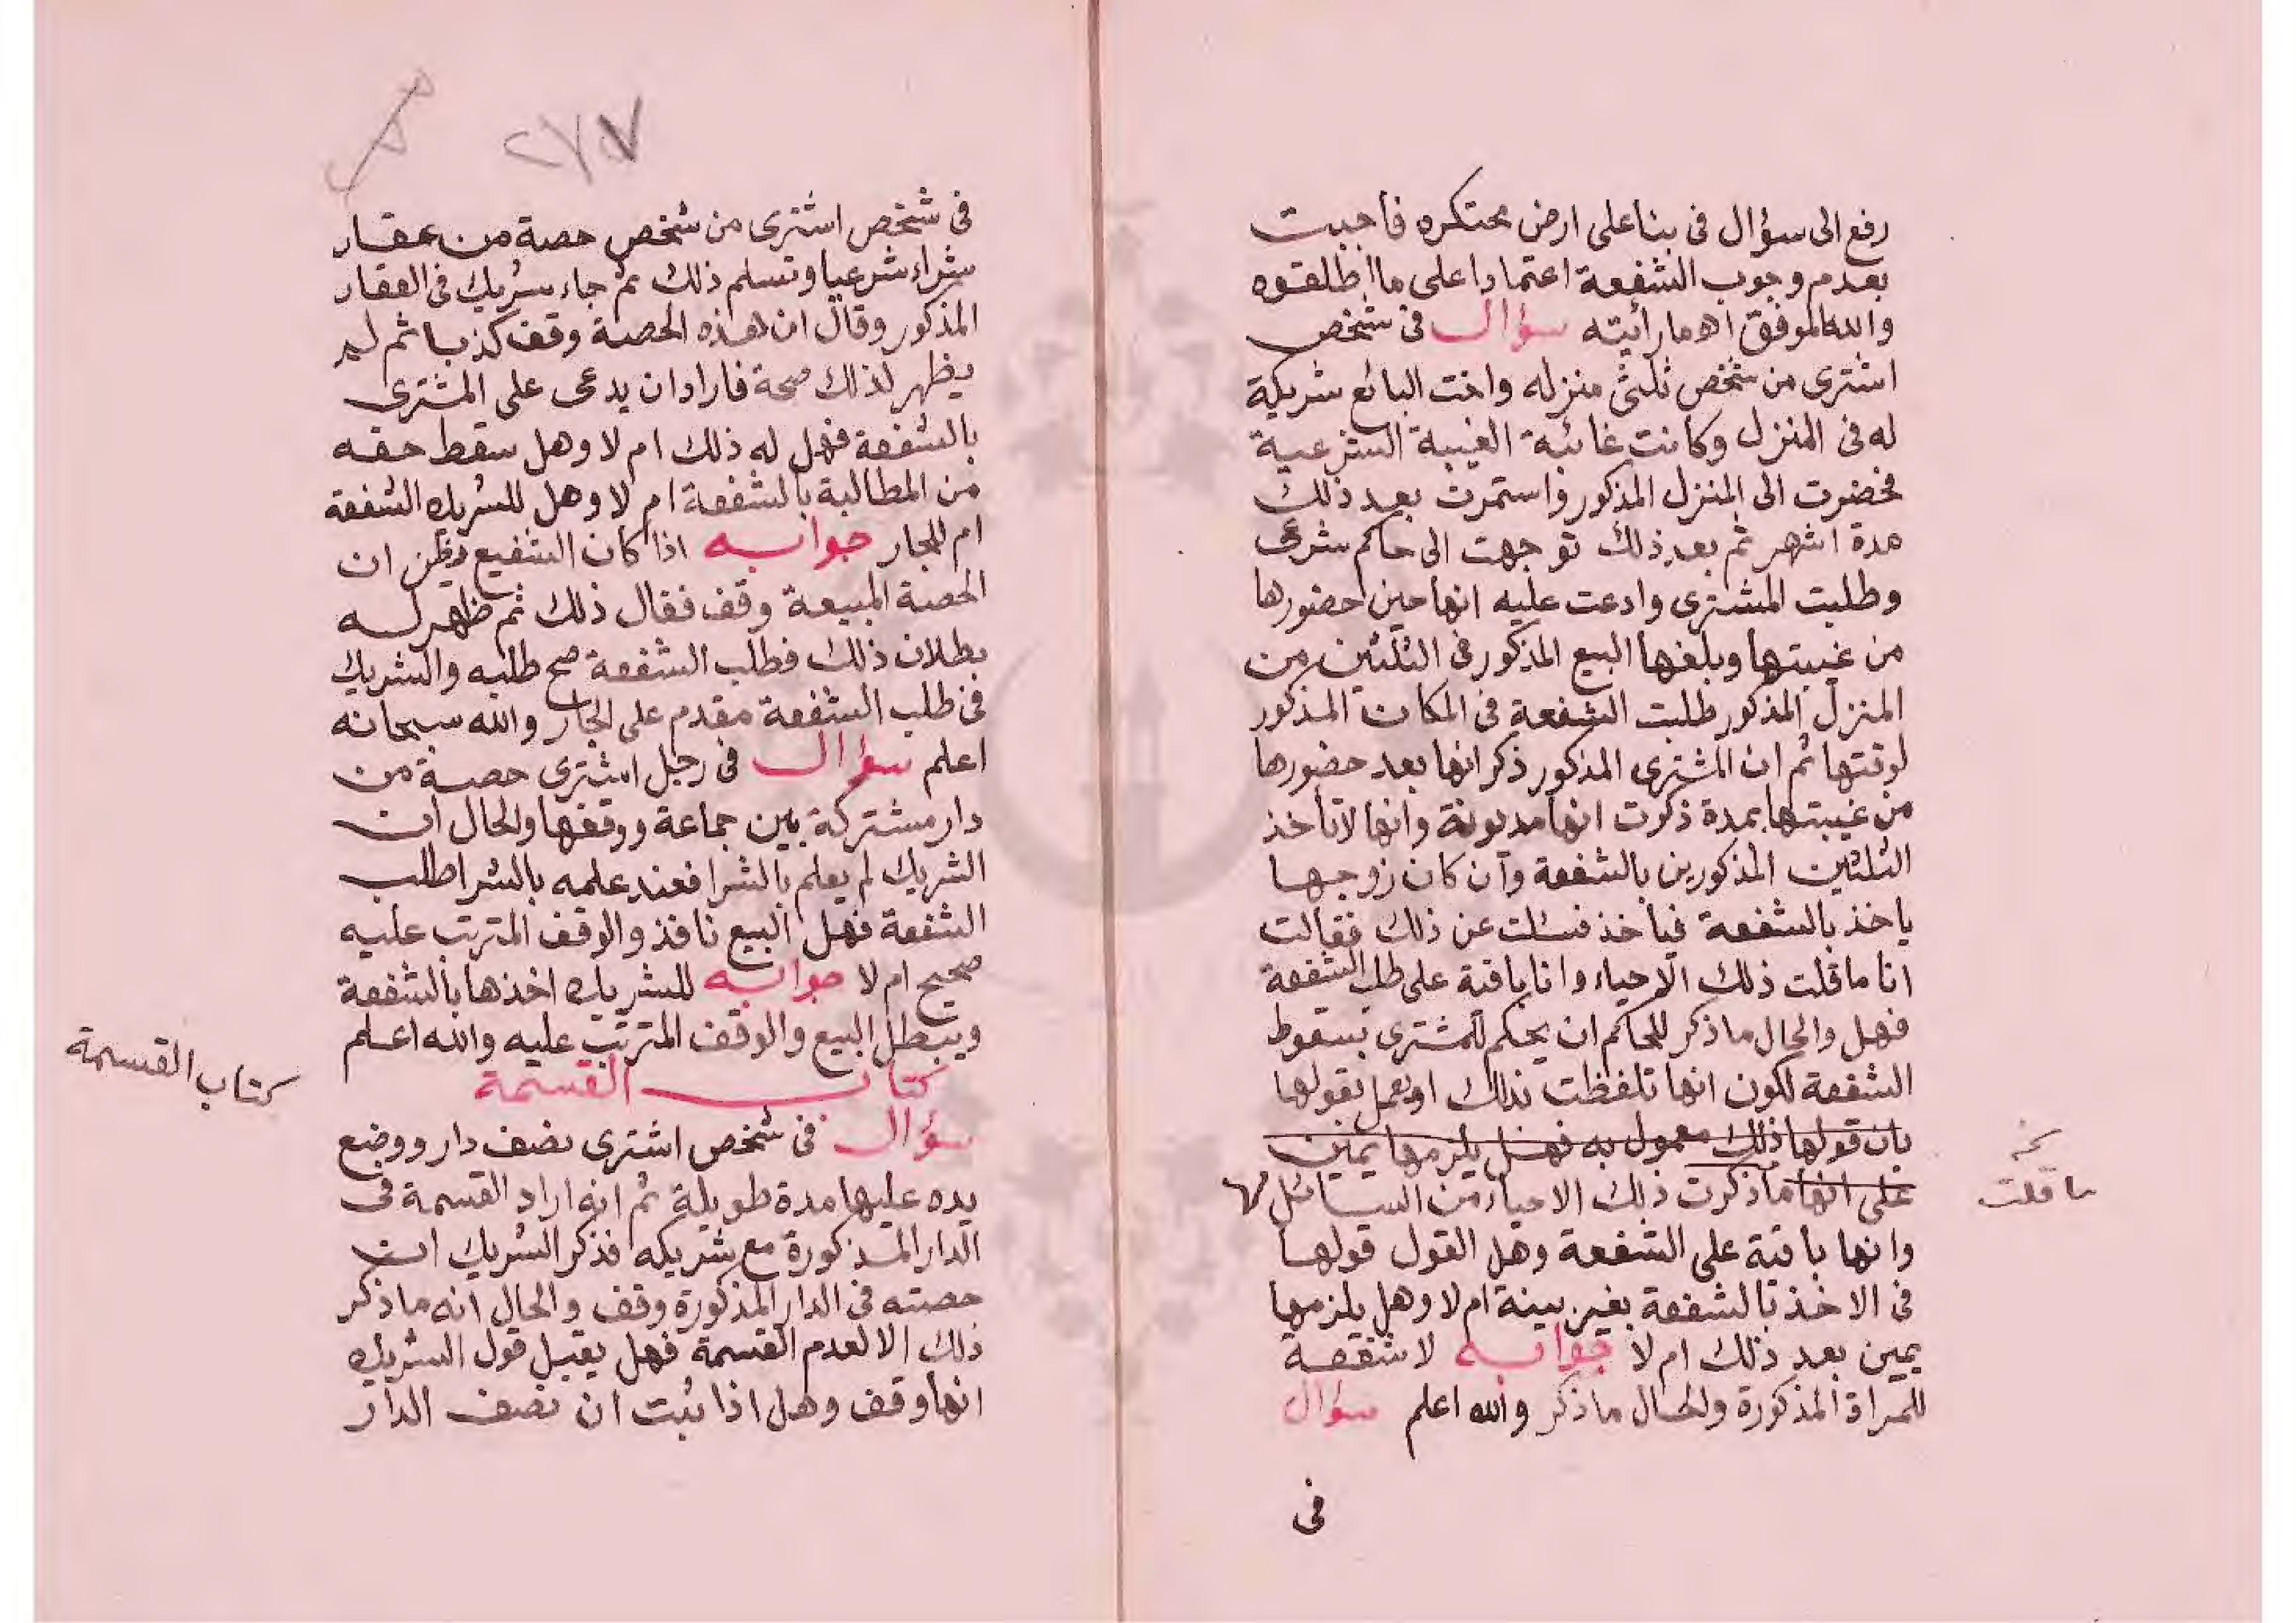 رفع الى سؤال فى بنا على ارض محتكره فأجبت
بعدم وجوب الشفعة اعتمادا على ما اطلقوه
والله الموفق اه ما رأيته سؤال فى شخص
اشترى من شخص ثلثى منزله واخت البائع شريكة
له فى المنزل وكانت غائبة الغيبة الشرعية
فحضرت الى المنزل المذكور واستمرت بعد ذلك
مدة اشهر ثم بعد ذلك توجهت الى حاكم شرعى
وطلبت المشترى وادعت عليه انها حين حضورها
من غيبتها وبلغها البيع المذكور فى الثلثين من
المنزل المذكور طلبت الشفعة فى المكان المذكور
لوقتها ثم ان المشترى المذكور ذكر انها بعد حضورها
من غيبتها بمدة ذكرت انها مديونة وانها لا تأخذ
الثلثين المذكورين بالشفعة وان كان زوجها
ياخذ بالشفعة فياخذ فسئلت عن ذلك فقالت
انا ما قلت ذلك الا حياء وانا باقية على طلب الشفعة
فهل والحال ما ذكر للحاكم ان يحكم للمشترى بسقوط
الشفعة لكون انها تلفظت بذلك او يعمل بقولها
بان قولها ذلك معمول به فهل يلزمها يمين
على انها ما ذكرت ذلك الا حياء من السائل لها
ما قلت
وانها باقية على الشفعة وهل القول قولها
فى الاخذ بالشفعة بغير بينة ام لا وهل يلزمها
يمين بعد ذلك ام لا جوابه لا شفعة
للمراة المذكورة والحال ما ذكر والله اعلم سؤال
فى
٢٧٧
فى شخص اشترى من شخص حصة من عقار
شراء شرعيا وتسلم ذلك ثم جاء شريك فى العقار
المذكور وقال ان هذه الحصة وقف كذبا ثم لم
يظهر لذلك صحة فاراد ان يدعى على المشترى
بالشفعة فهل له ذلك ام لا وهل سقط حقه
من المطالبة بالشفعة ام لا وهل للشريك الشفعة
ام للجار جوابه اذا كان الشفيع يظن ان
الحصة المبيعة وقف فقال ذلك ثم ظهر له
بطلان ذلك فطلب الشفعة صح طلبه والشريك
فى طلب الشفعة مقدم على الجار والله سبحانه
اعلم سؤال فى رجل اشترى حصة من
دار مشتركة بين جماعة ووقفها والحال ان
الشريك لم يعلم بالشرا فعند علمه بالشرا طلب
الشفعة فهل البيع نافذ والوقف المترتب عليه
صحيح ام لا جوابه للشريك اخذها بالشفعة
ويبطل البيع والوقف المترتب عليه والله اعلم
كتاب القسمة
كتاب القسمة
سؤال فى شخص اشترى نصف دار ووضع
يده عليها مدة طويلة ثم انه اراد القسمة فى
الدار المذكورة مع شريكه فذكر الشريك ان
حصته فى الدار المذكورة وقف والحال انه ما ذكر
ذلك الا لعدم القسمة فهل يقبل قول الشريك
انها وقف وهل اذا ثبت ان نصف الدار